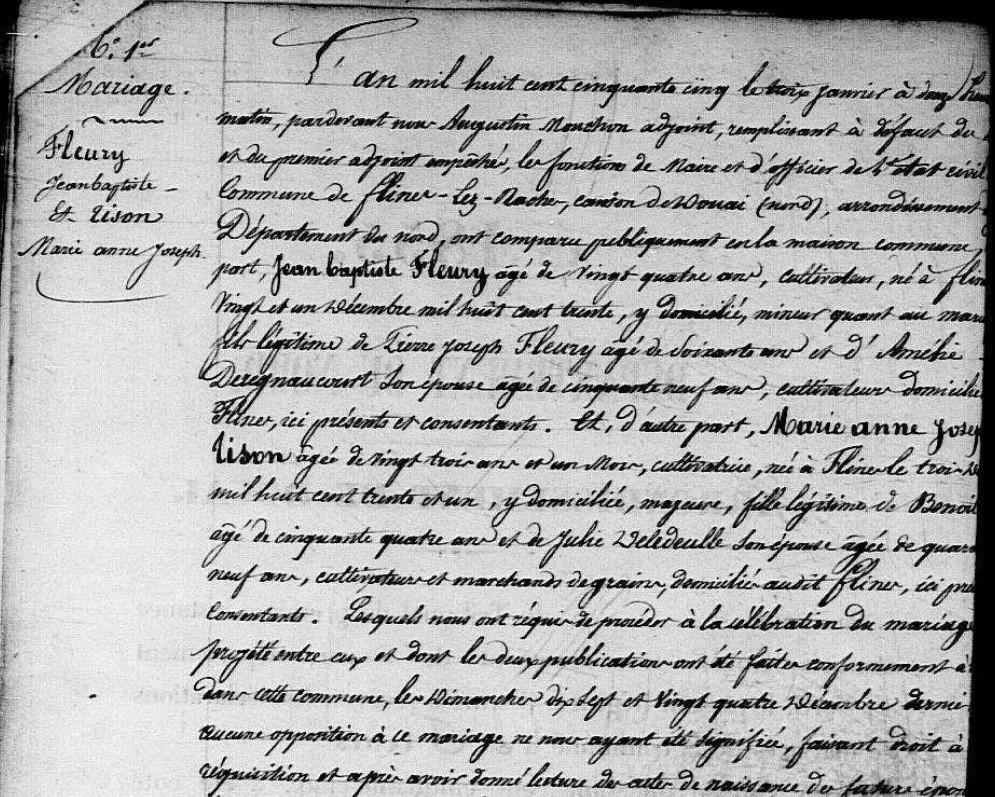 6.e 1er
Mariage.
Fleury
Jean baptiste
Et Tison
Marie anne Joseph
L'an mil huit cent cinquante cinq le trois janvier à douze heu
matin, pardevant nous Augustin Mouchon adjoint, remplissant à défaut du
et du premier adjoint empêché, les fonctions de Maire et d'officier de l'état civil
Commune de flines-lez-Raches, canton de Douai (nord), arrondissement
Département du nord, ont comparu publiquement en la maison commune,
part, Jean baptiste Fleury agé de vingt quatre ans, cultivateur, né à flin
Vingt et un Décembre mil huit cent trente, y domicilié, mineur quant au maria
fils légitime de Pierre Joseph Fleury agé de Soixante ans et d'Amélie
Deregnaucourt Son épouse agée de cinquante neuf ans, cultivateurs domicilié
Flines, ici présents et consentants. Et, d'autre part, Marie anne Josep
Tison agée de vingt trois ans et un Mois, cultivatrice, née à Flines le trois Dé
mil huit cent trente et un, y domiciliée, majeure, fille légitime de Benoit
agé de cinquante quatre ans et de Julie Deledeulle Son épouse agée de quara
neuf ans, cultivateurs et marchands de grains, domiciliés audit flines, ici pré
Consentants. Lesquels nous ont réquis de procéder à la célébration du mariage
projété entre eux et dont les deux publications ont été faites conformement à
dans cette commune, les Dimanches dix Sept et vingt quatre Décembre dernie
Aucune opposition à ce mariage ne nous ayant été Signifiée, faisant droit à
réquisition et après avoir donné lecture des actes de naissance des futurs épou